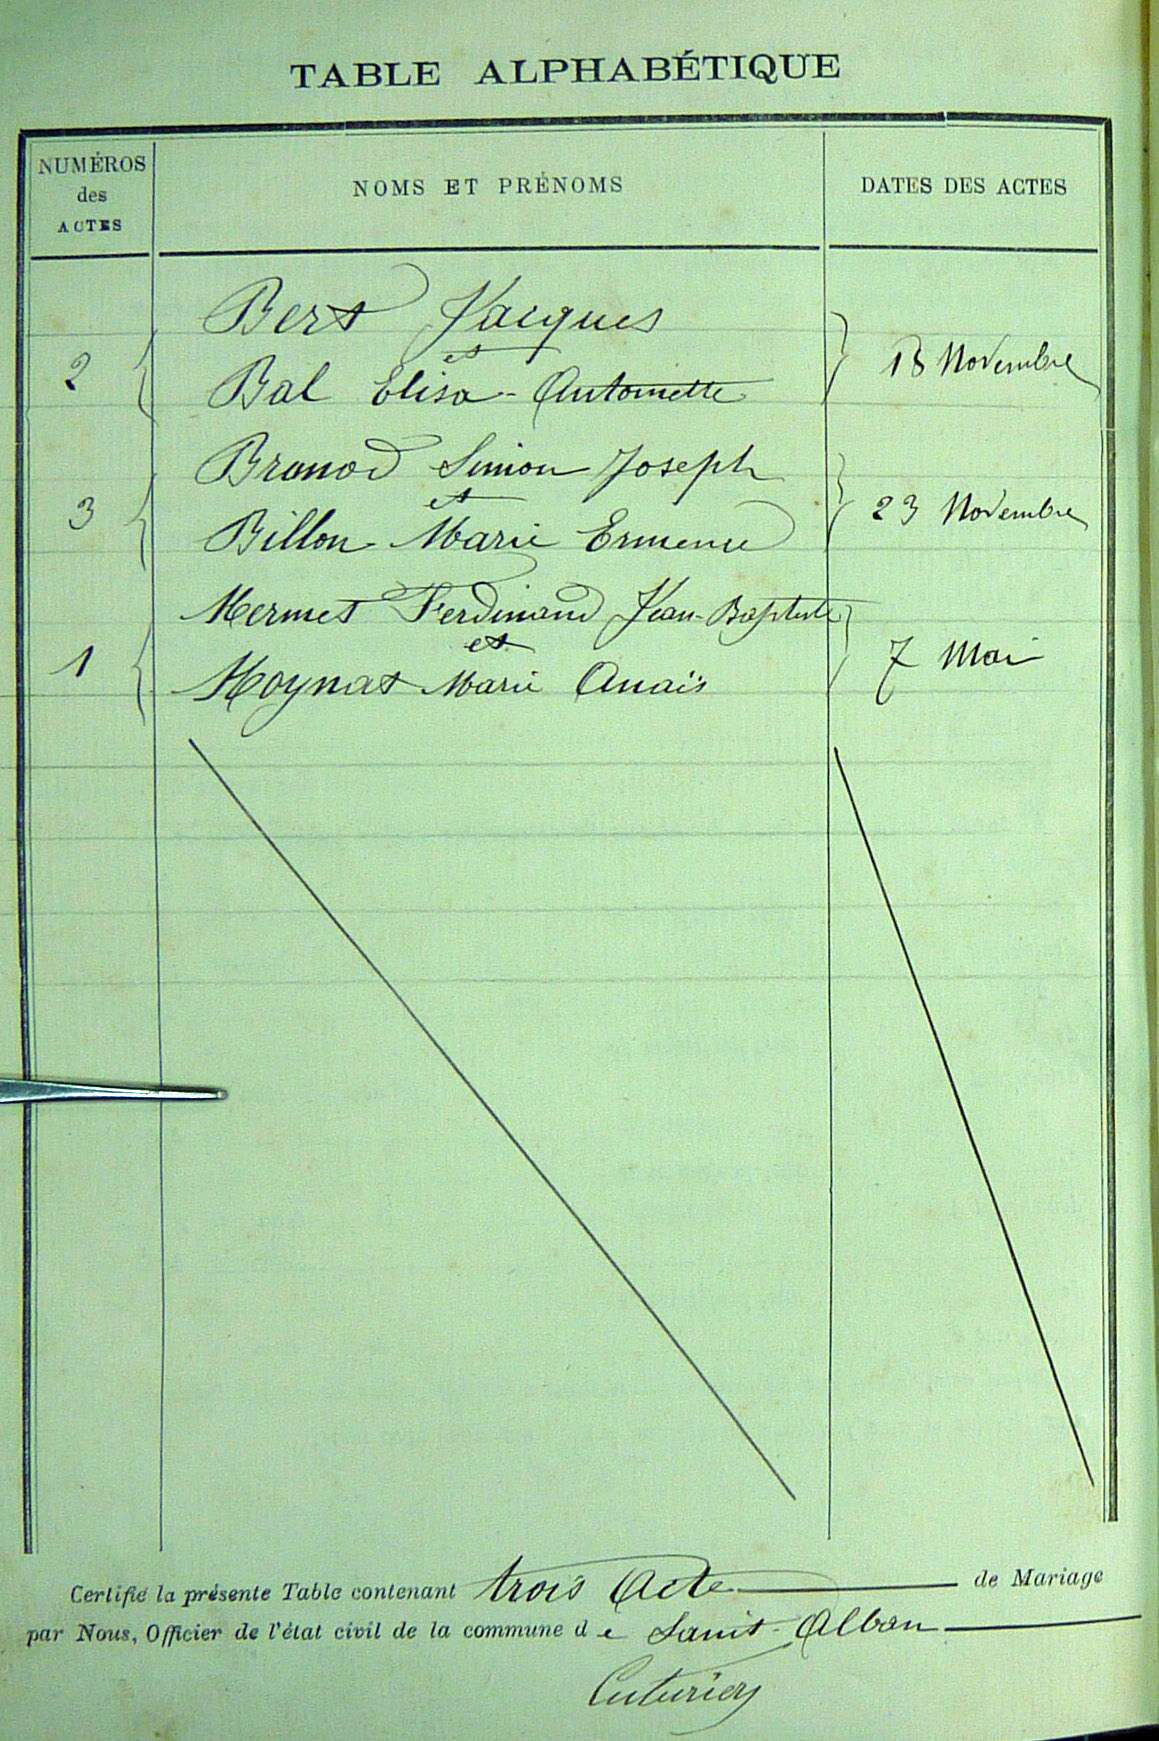 TABLE ALPHABÉTIQUE
NUMÉROS des ACTES
NOMS ET PRÉNOMS
DATES DES ACTES
Bert Jacques
et
2 Bal Elisa-Antoinette 18 Novembre
Brunod Simon Joseph
et
3 Billon Marie 23 Novembre
Mermet Ferdinand Jean-Baptiste
et
1 Moynat Marie Anaïs 7 Mai
Certifié la présente Table contenant trois Acte de Mariage
par Nous, Officier de l'état civil de la commune de Saint-Alban